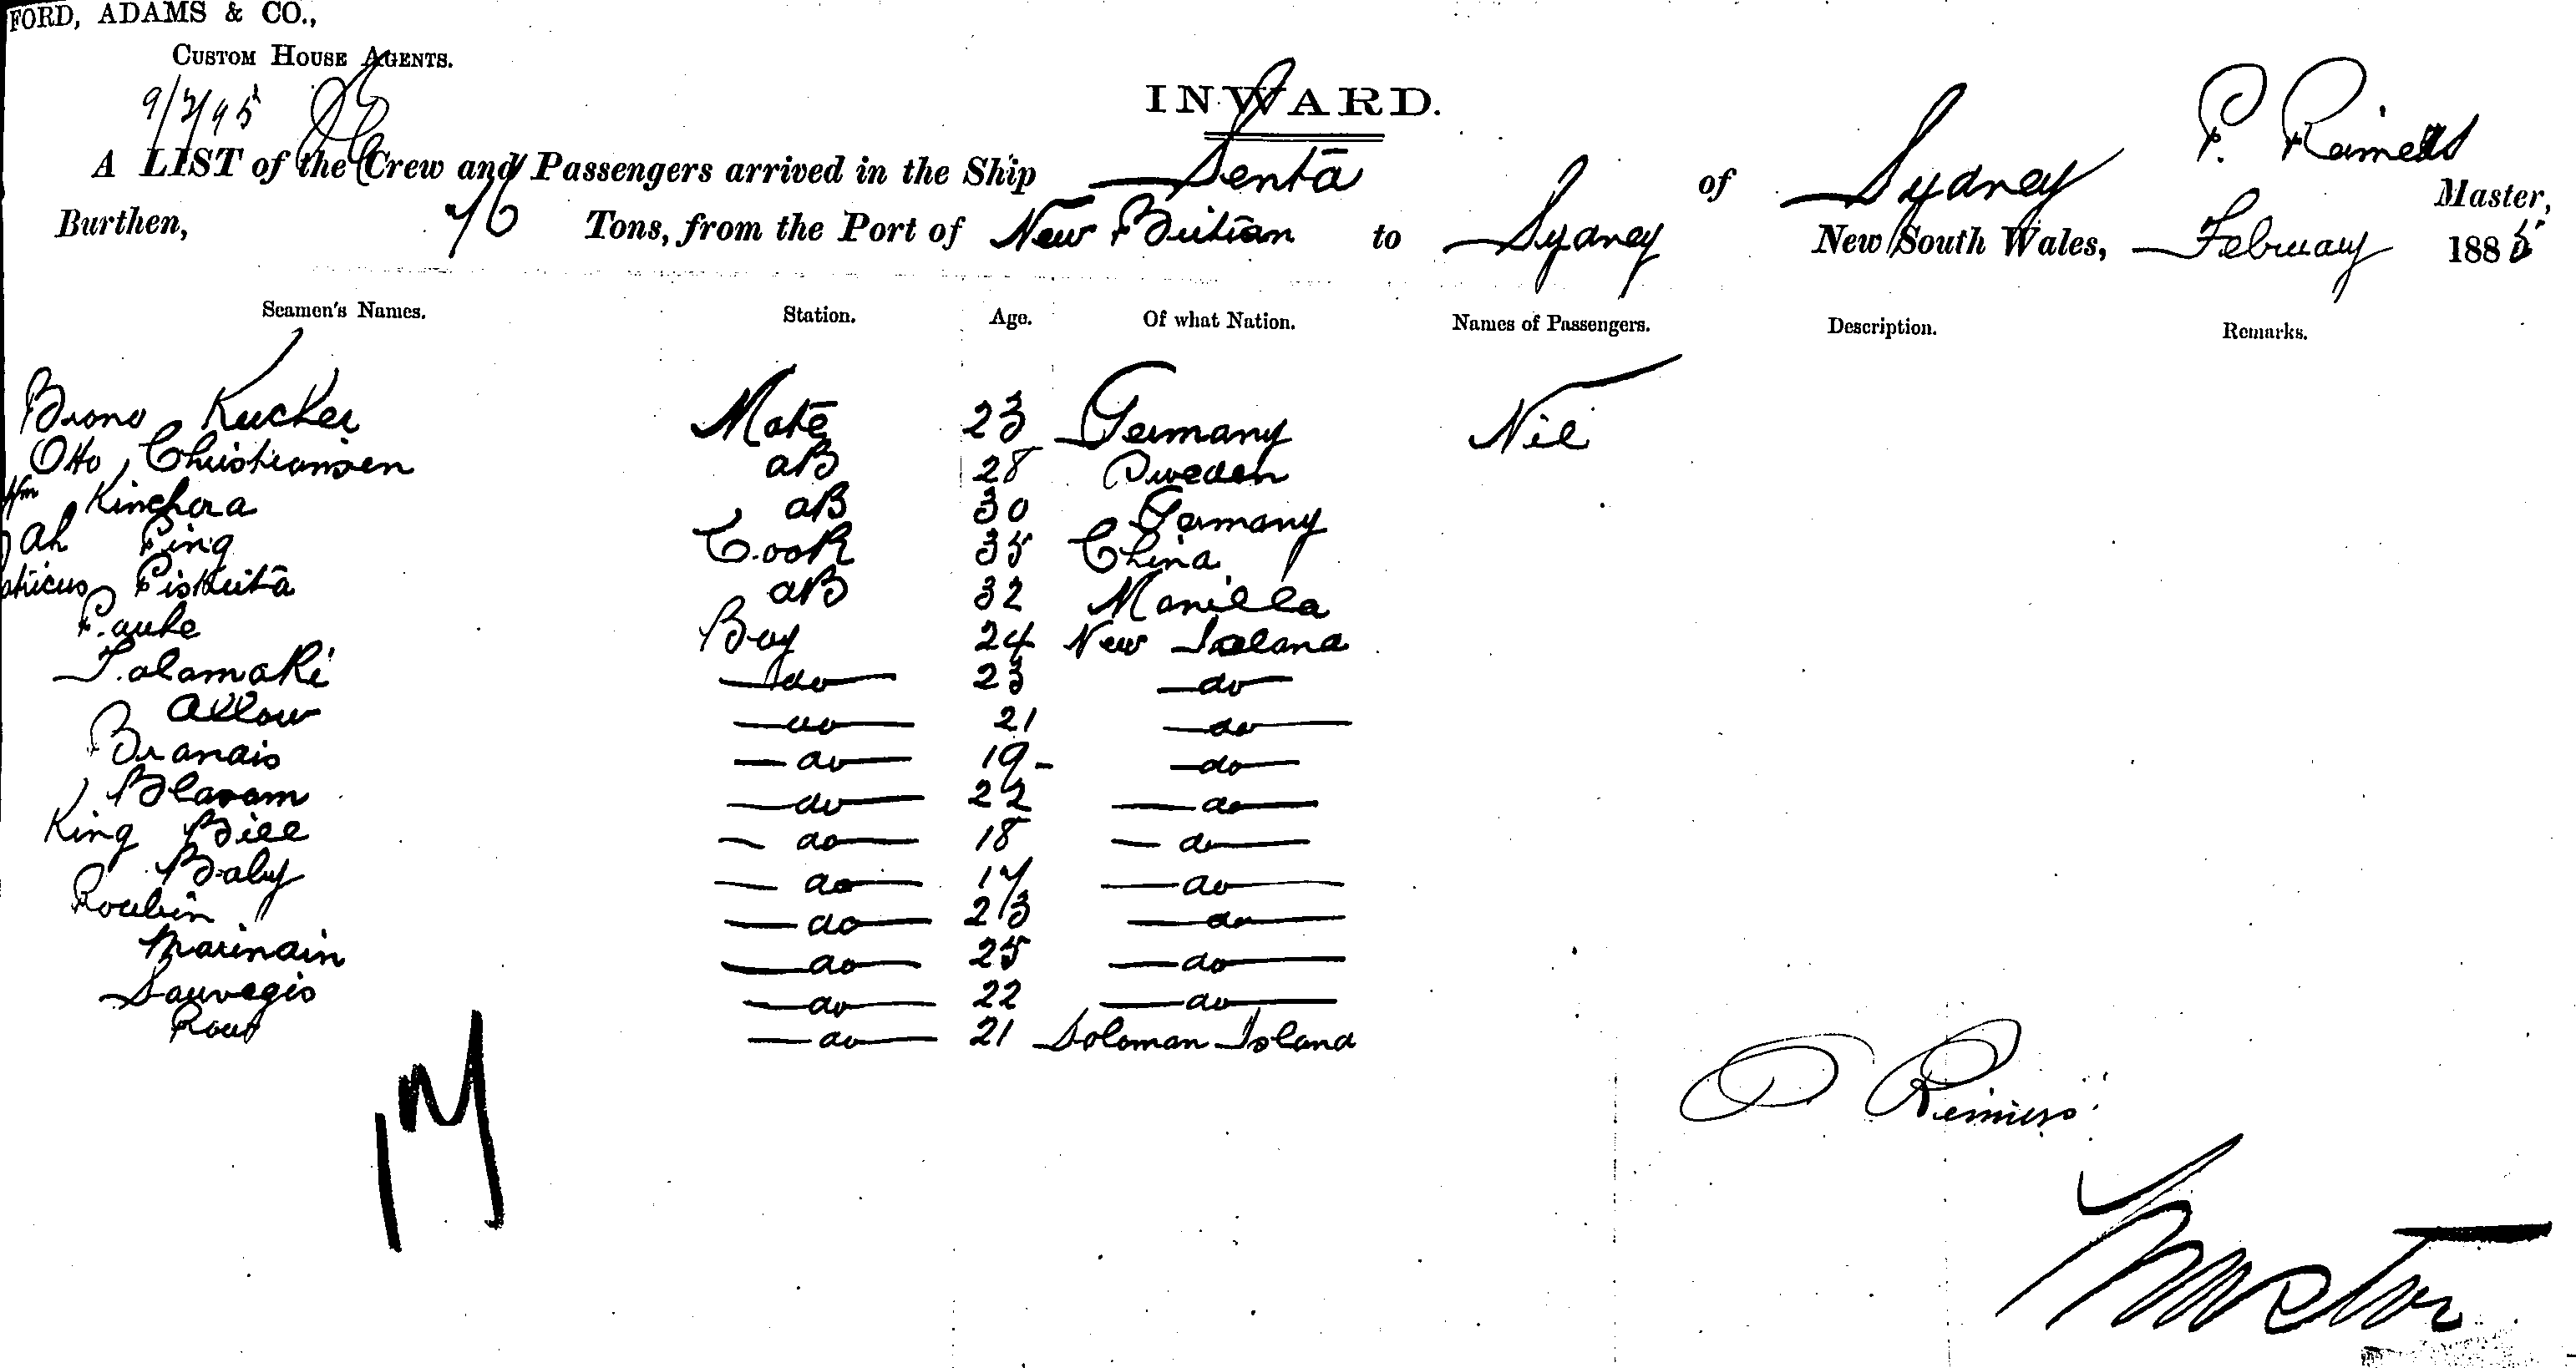 FORD, ADAMS & CO.,
CUSTOM HOUSE AGENTS.
9/2/95
INWARD.
A LIST of the Crew and Passengers arrived in the Ship Senta of Sydney P. Reimers Master,
Burthen, 76 Tons, from the Port of New Britian to Sydney New South Wales, February 1885
Seamen's Names. Station. Age. Of what Nation. Names of Passengers. Description. Remarks.
Brono Kucker Mate 23 Germany Nil
Otto Christiansen aB 28 Sweden
Wm Kinchora aB 30 Germany
Ah Ping Cook 35 China
Piskuita aB 32 Manilla
Pauke Boy 24 New Ireland
Talamaki do 23 do
Allow do 21 do
Branais do 19 do
Blavam do 22 do
King Bill do 18 do
Baby do 17 do
Roubin do 23 do
Marinain do 25 do
Sauvegis do 22 do
Rout do 21 Soloman Island
17
P Reimers
Master